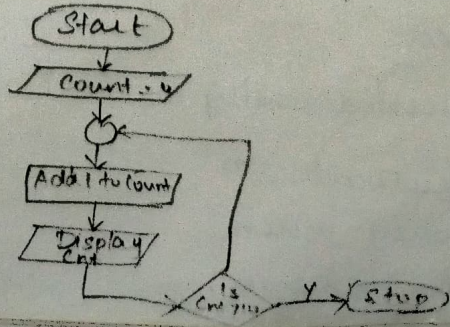 Start
Count = 4
Add 1 to Count
Display
Cnt
Is
Cnt
Y
Stop